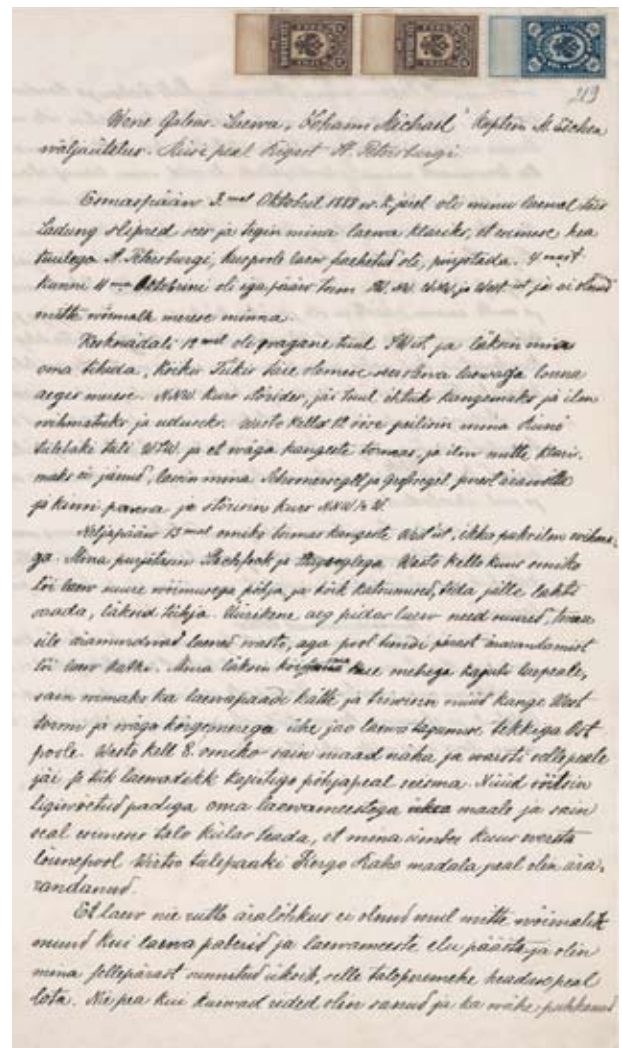 219
Wene Galeas. Laewa, "Johann Michael" Kaptein A.
wäljaütelus. Reise peal Rigast St. Petersburgi.
Esmaspääw 3mal Oktobril 1888 w. k. järel oli minu laewal täis
Ladung slipred sees ja tegin mina laewa klaariks, et esimese hea
tuulega St. Petersburgi, kuspoole laew frachetud oli, purjetada. 4mast
kunni 11ma Oktobrini oli iga pääw torm W. NW. ja West ist ja ei olnud
mitte wõimalik merese minna.
Kesknädali 12mal oli tuul SW ist, ja läksin mina
oma tihuda, laewaga
merese. NNW. Kurs jäi tuul ühtuks kangemaks ja ilm
wihmatuks ja uduseks. Wasto kello 12 ööse peilisin mina Runö
tuli ja et wäga kangeste tormas, ja ilm mitte klaari-
maks ei jänud, lasin mina ja
ja kinni panna ja stürisin kurs NNW
Neljapääw 13mal omiko tormas kangeste West ist, ikka paks ilm wihma-
ga. Mina purjetasin ja Wasto kello kuus omiko
lõi laew suure wõimusega põhja, ja kõik katsumised, teda jälle lahti
saada, läksid tühja. Üürikene aeg pidas laew need suured, tema
üle äramurdwad laened wasto, aga pool tundi pärast ärarandamist
lõi laew katki. Mina läksin mehega kajuti laepeale,
sain wimaks ka laewapaadi kätte ja triiwisin nüüd kange West
tormi ja wäga kõrge merega ühe jao laewa tagumise tekkiga Ost
poole. Wasto kell 8. omiko sain maad näha ja warsti selle peale
jäi se tük laewadekk kajutiga põhjapeal seisma. Nüüd sõitsin
ligiwõetud paadiga oma laewameestega maale ja sain
seal esimeses talo külas teada, et mina umbes kuus wersta
lõunepool Wirtso tulepaaki Raho madala peal olin ära-
randanud.
Et laew nie rutto äralõhkus ei olnud muil mitte wõimalik
muud kui laewa paberid ja laewameeste elu päästa ja olin
mina sellepärast sunnitud üksik, selle taloperemehe headuse peal
lota. Nie pea kui kuiwad rided olin sanud ja ka wähe puhkanud